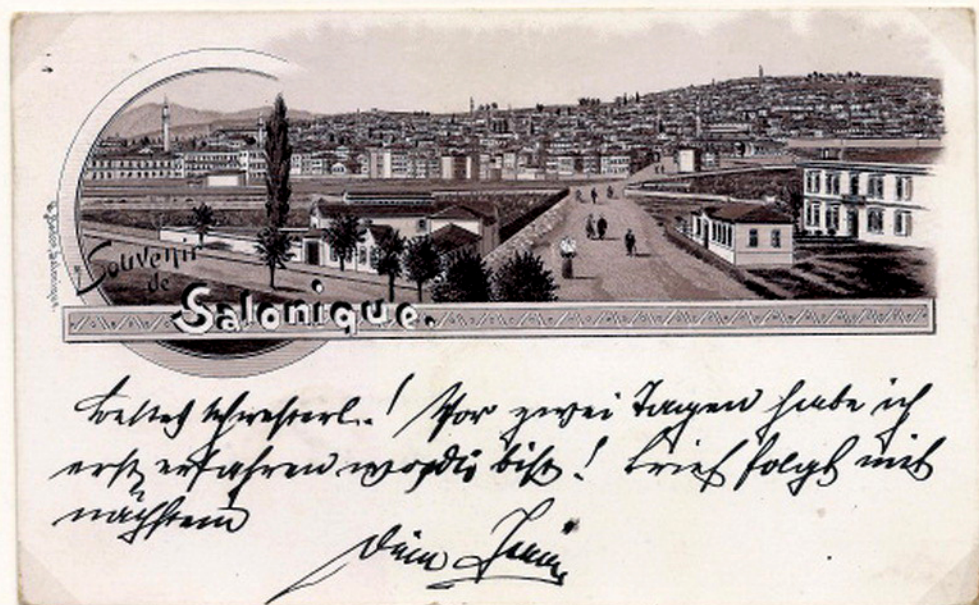 Souvenir
de
Salonique.
Schwesterl.! Vor zwei Tagen habe ich
erst erfahren wo du bist! Brief folgt mit
nächstem
Dein